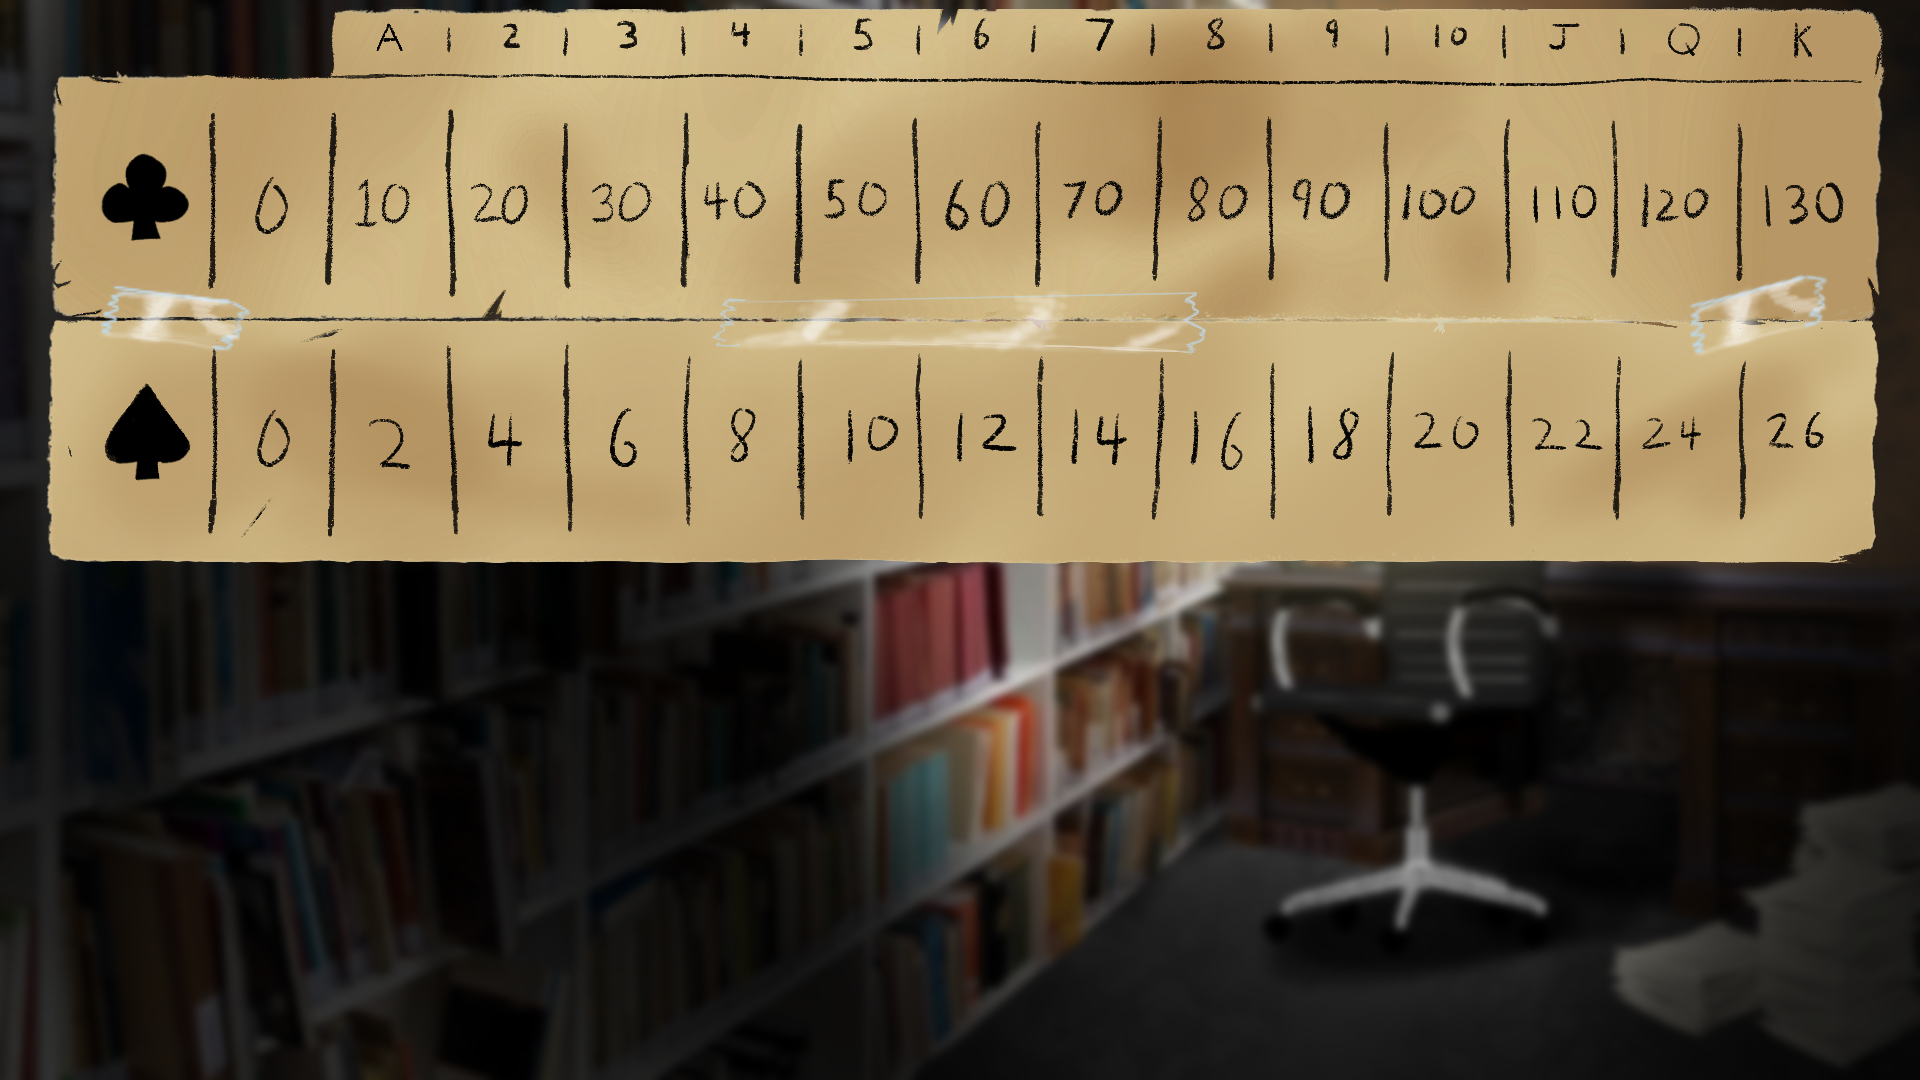 A | 2 | 3 | 4 | 5 | 6 | 7 | 8 | 9 | 10 | J | Q | K
♣ | 0 | 10 | 20 | 30 | 40 | 50 | 60 | 70 | 80 | 90 | 100 | 110 | 120 | 130
♠ | 0 | 2 | 4 | 6 | 8 | 10 | 12 | 14 | 16 | 18 | 20 | 22 | 24 | 26